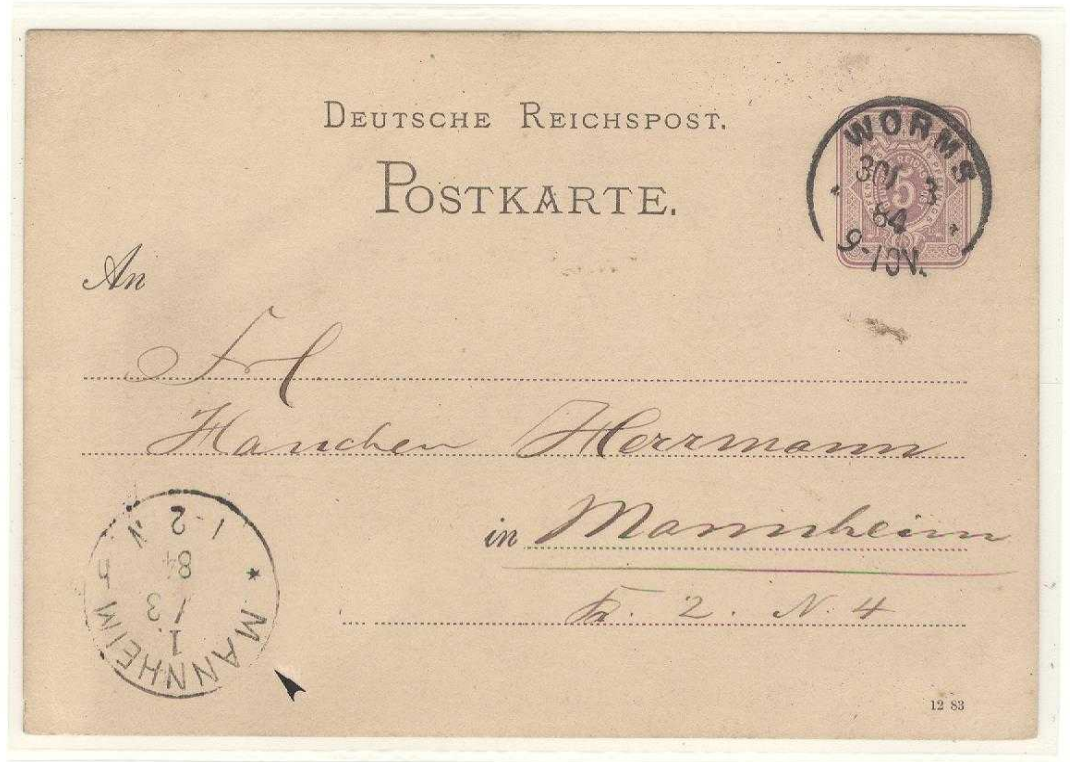 DEUTSCHE REICHSPOST.
POSTKARTE.
WORMS
3
84
9-10V.
5
An
Frl
Hanchen Herrmann
in Mannheim
2. N. 4
MANNHEIM
1
/ 3
84
1-2 N
12 83